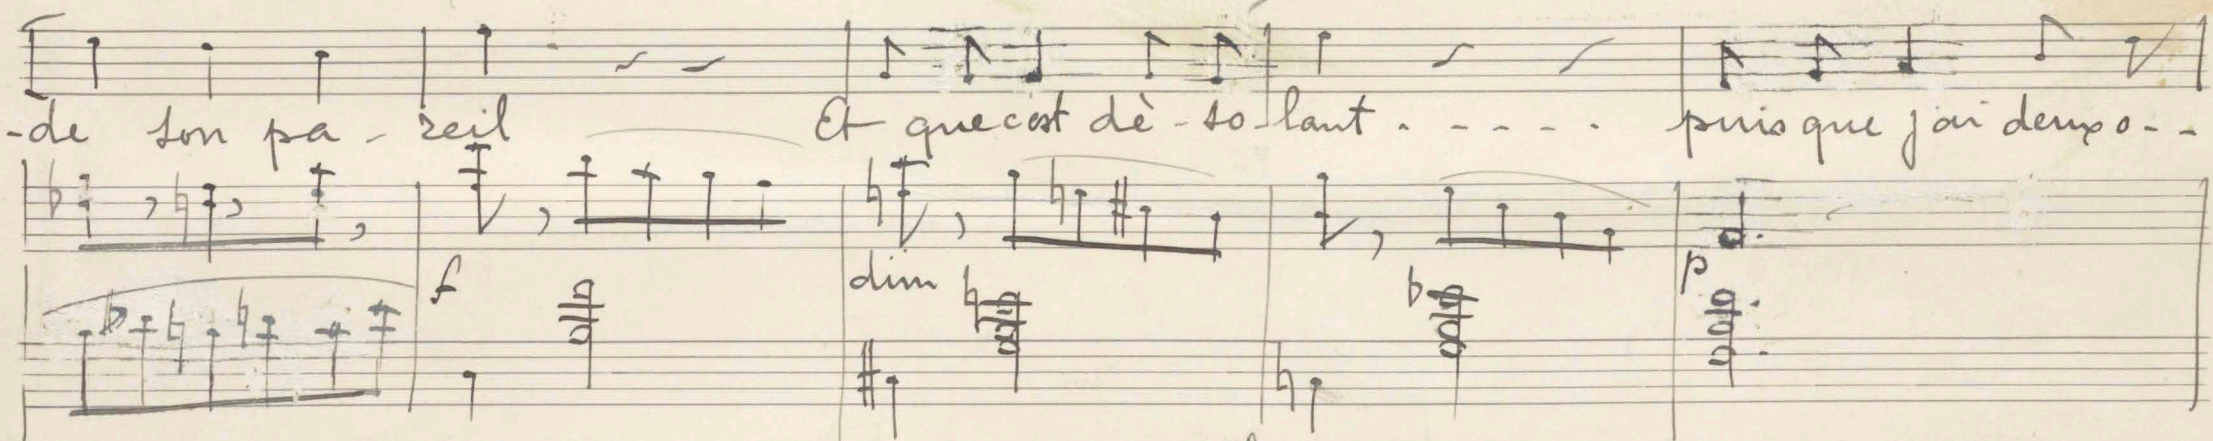 -de son pa-reil Et que c'est dè-so-lant..... puisque j'ai deux o--
f dim p